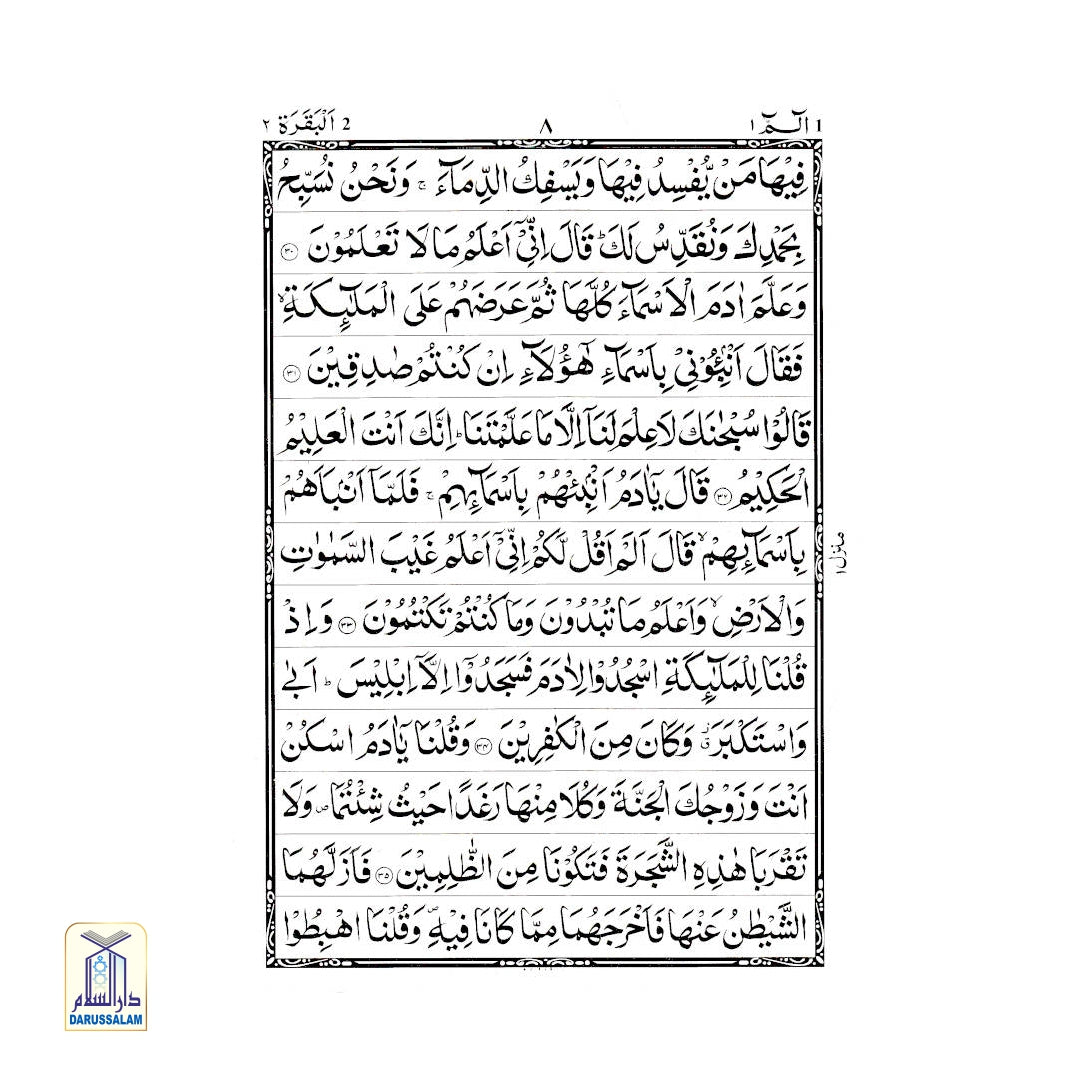 1 الٓمّٓ ١
٨
2 اَلْبَقَرَة ٢
فِيْهَا مَنْ يُّفْسِدُ فِيْهَا وَيَسْفِكُ الدِّمَآءَ ۚ وَنَحْنُ نُسَبِّحُ
بِحَمْدِكَ وَنُقَدِّسُ لَكَ ؕ قَالَ اِنِّيْٓ اَعْلَمُ مَا لَا تَعْلَمُوْنَ ﴿٣٠﴾
وَعَلَّمَ اٰدَمَ الْاَسْمَآءَ كُلَّهَا ثُمَّ عَرَضَهُمْ عَلَى الْمَلٰٓئِكَةِ ۙ
فَقَالَ اَنْۢبِـُٔوْنِيْ بِاَسْمَآءِ هٰٓؤُلَآءِ اِنْ كُنْتُمْ صٰدِقِيْنَ ﴿٣١﴾
قَالُوْا سُبْحٰنَكَ لَا عِلْمَ لَنَآ اِلَّا مَا عَلَّمْتَنَا ؕ اِنَّكَ اَنْتَ الْعَلِيْمُ
الْحَكِيْمُ ﴿٣٢﴾ قَالَ يٰٓاٰدَمُ اَنْۢبِئْهُمْ بِاَسْمَآئِهِمْ ۚ فَلَمَّآ اَنْۢبَاَهُمْ
بِاَسْمَآئِهِمْ ۙ قَالَ اَلَمْ اَقُلْ لَّكُمْ اِنِّيْٓ اَعْلَمُ غَيْبَ السَّمٰوٰتِ
وَالْاَرْضِ ۙ وَاَعْلَمُ مَا تُبْدُوْنَ وَمَا كُنْتُمْ تَكْتُمُوْنَ ﴿٣٣﴾ وَاِذْ
قُلْنَا لِلْمَلٰٓئِكَةِ اسْجُدُوْا لِاٰدَمَ فَسَجَدُوْٓا اِلَّآ اِبْلِيْسَ ؕ اَبٰى
وَاسْتَكْبَرَ ۗ وَكَانَ مِنَ الْكٰفِرِيْنَ ﴿٣٤﴾ وَقُلْنَا يٰٓاٰدَمُ اسْكُنْ
اَنْتَ وَزَوْجُكَ الْجَنَّةَ وَكُلَا مِنْهَا رَغَدًا حَيْثُ شِئْتُمَا ۪ وَلَا
تَقْرَبَا هٰذِهِ الشَّجَرَةَ فَتَكُوْنَا مِنَ الظّٰلِمِيْنَ ﴿٣٥﴾ فَاَزَلَّهُمَا
الشَّيْطٰنُ عَنْهَا فَاَخْرَجَهُمَا مِمَّا كَانَا فِيْهِ ۪ وَقُلْنَا اهْبِطُوْا
منزل ١
دار السلام
DARUSSALAM